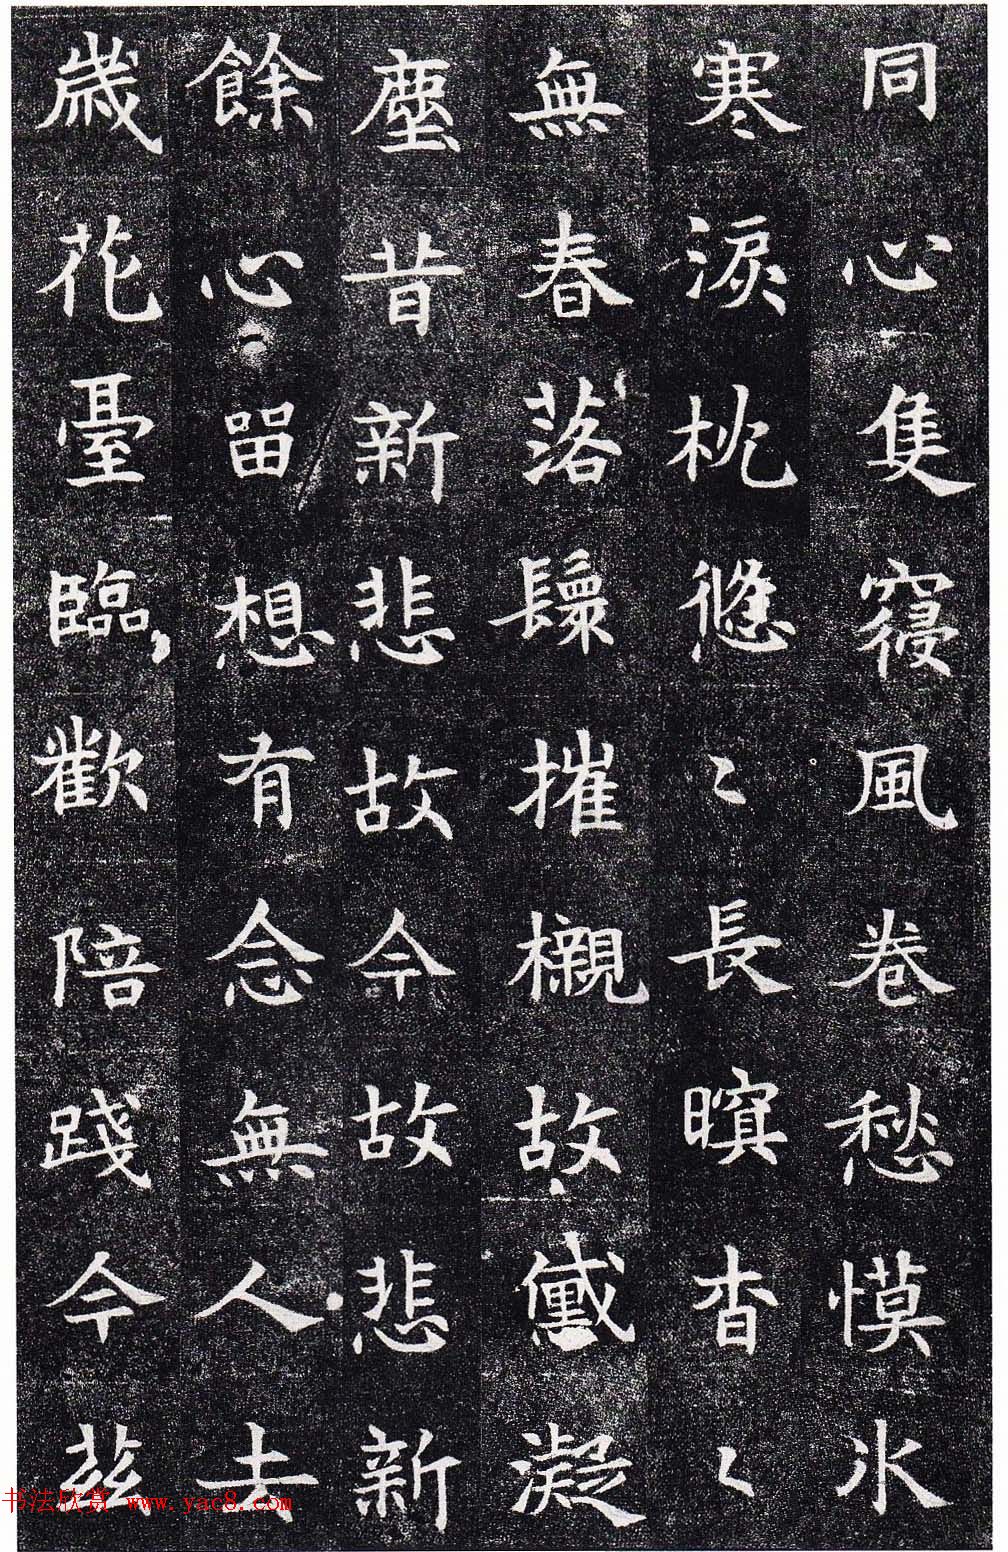 同心隻寢風卷愁慔氷
寒淚枕悠〻長瞑杳〻
無春落鬟摧櫬故黛凝
塵昔新悲故今故悲新
餘心留想有念無人去
歲花臺臨歡陪踐今茲
书法欣赏 www.yac8.com